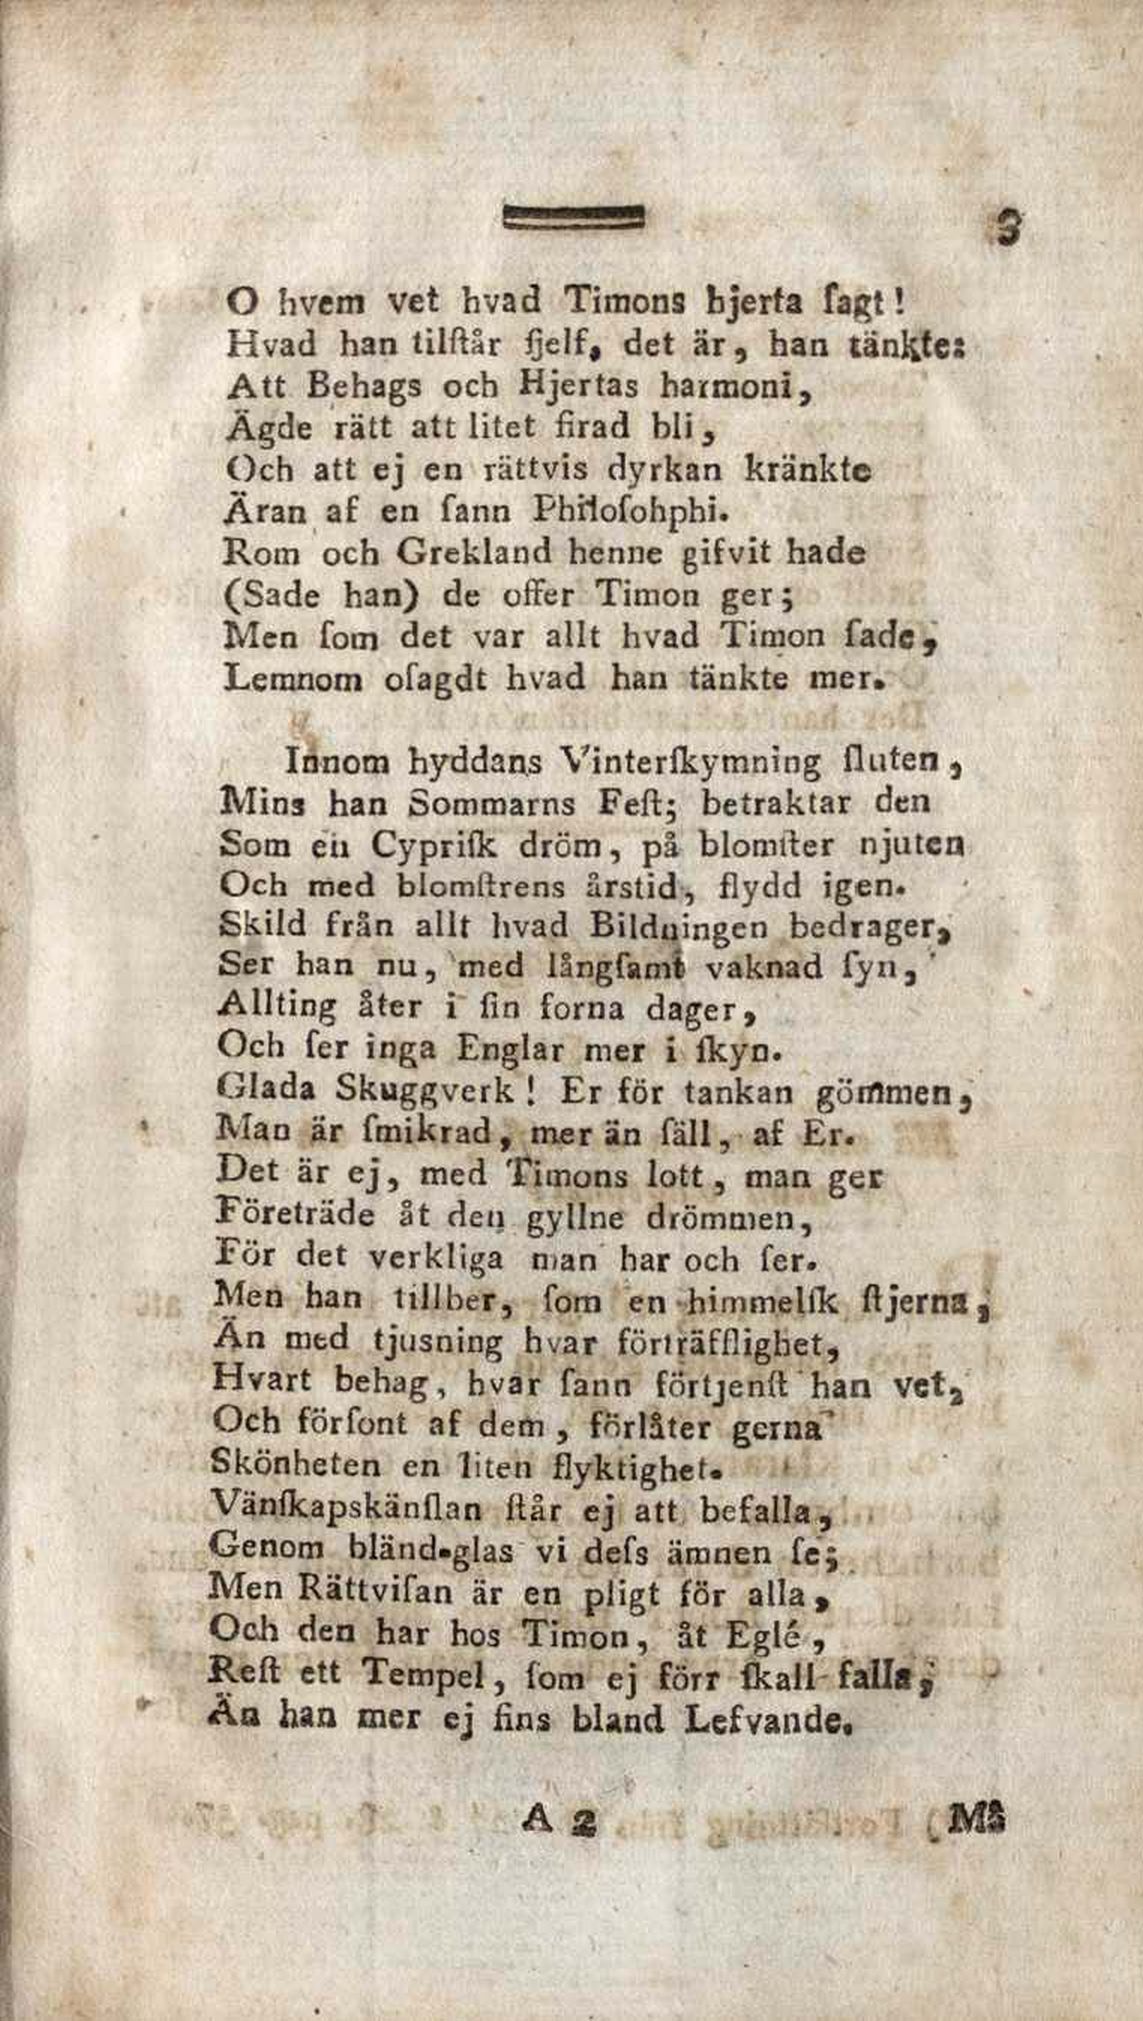 3
O hvem vet hvad Timons hjerta ſagt!
Hvad han tilſtår ſjelf, det är, han tänkte:
Att Behags och Hjertas harmoni,
Ägde rätt att litet firad bli,
Och att ej en rättvis dyrkan kränkte
Äran af en ſann Philoſohphi.
Rom och Grekland henne gifvit hade
(Sade han) de offer Timon ger;
Men ſom det var allt hvad Timon ſade,
Lemnom oſagdt hvad han tänkte mer.
Innom hyddans Vinterſkymning ſluten,
Mins han Sommarns Feſt; betraktar den
Som en Cypriſk dröm, på blomſter njuten
Och med blomſtrens årstid, flydd igen.
Skild från allt hvad Bildningen bedrager,
Ser han nu, med långſamt vaknad ſyn,
Allting åter i ſin forna dager,
Och ſer inga Englar mer i ſkyn.
Glada Skuggverk! Er för tankan gömmen,
Man är ſmikrad, mer än ſäll, af Er.
Det är ej, med Timons lott, man ger
Företräde åt den gyllne drömmen,
För det verkliga man har och ſer.
Men han tillber, ſom en himmelſk ſtjerna,
Än med tjusning hvar förträfflighet,
Hvart behag, hvar ſann förtjenſt han vet,
Och förſont af dem, förlåter gerna
Skönheten en liten flyktighet.
Vänſkapskänſlan ſtår ej att befalla,
Genom bländ-glas vi deſs ämnen ſe;
Men Rättviſan är en pligt för alla,
Och den har hos Timon, åt Eglé,
Reſt ett Tempel, ſom ej förr ſkall falla,
Än han mer ej fins bland Lefvande.
A 2 Må